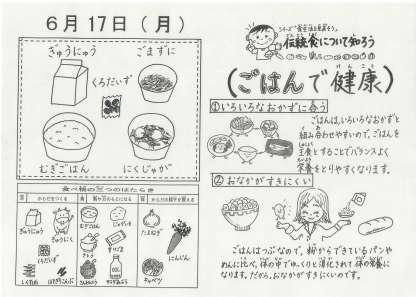 6月17日（月）
ぎゅうにゅう
ごまずに
くろだいず
むぎごはん
にくじゃが
食べ物の三つのはたらき
赤
からだをつくる
黄
緑
からだの調子を整える
ぎゅうにゅう
ぎゅうにく
むぎごはん
じゃがいも
たまねぎ
にんじん
キャベツ
さとう
伝統食について知ろう
（ごはんで健康）
けんこう
①いろいろなおかずに合う
ごはんは、いろいろなおかずと
組み合わせやすいので、ごはんを
主食とすることでバランスよく
栄養をとりやすくなります。
②おなかがすきにくい
ごはんはつぶなので、粉からできているパンや
めんに比べ、体の中でゆっくりと消化されて体の栄養に
なります。だから、おなかがすきにくいのです。